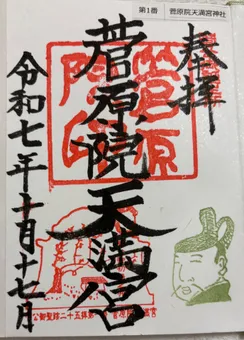 第1番 菅原院天満宮神社
奉拝
菅原院天満宮
令和七年十月十七日
菅原
院印